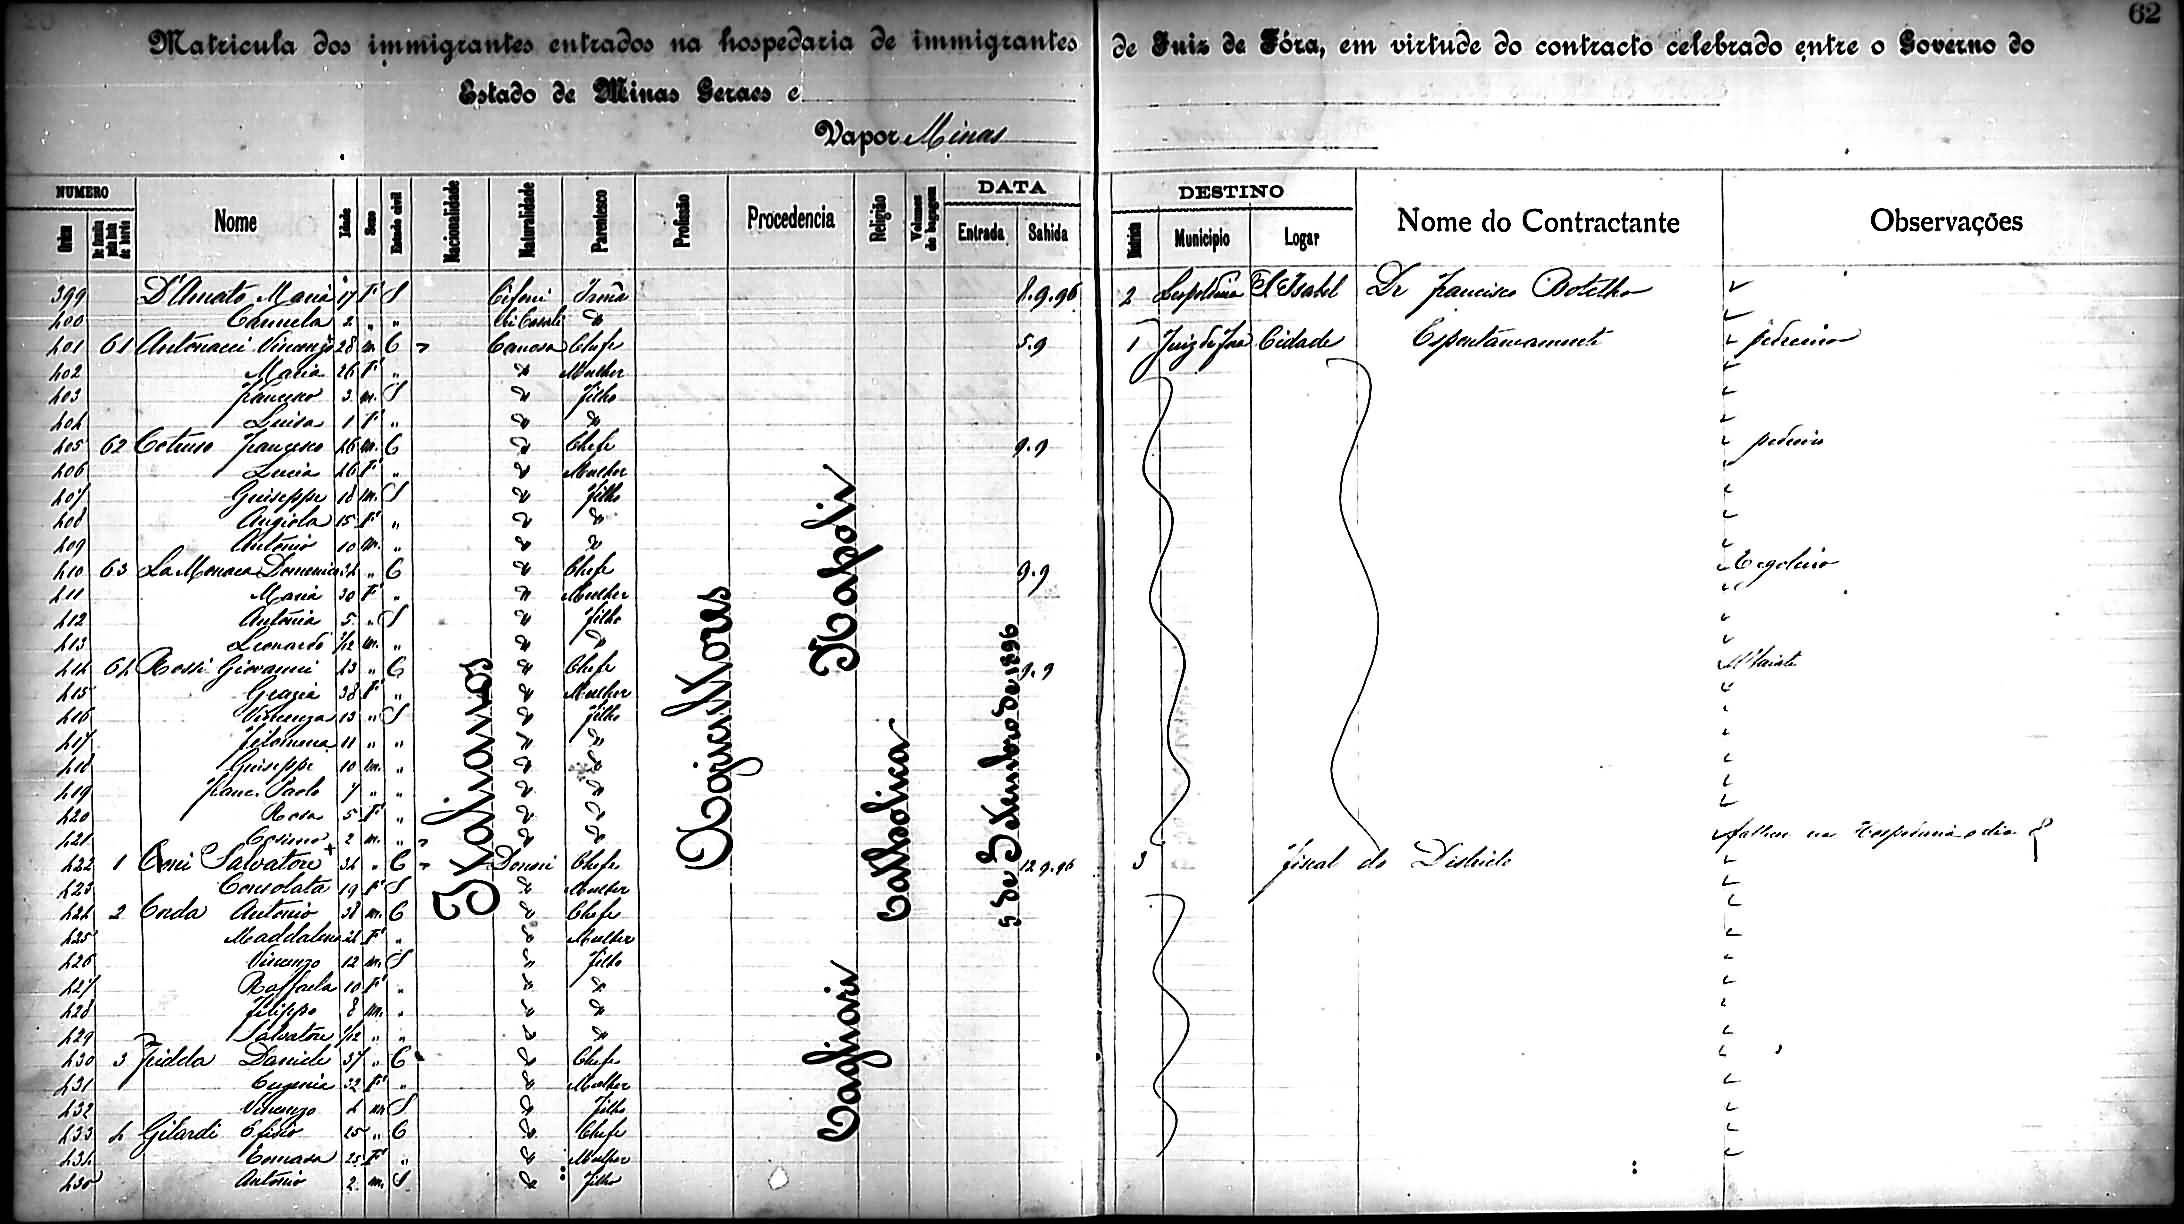 62
Matricula dos immigrantes entrados na hospedaria de immigrantes de Juiz de Fóra, em virtude do contracto celebrado entre o Governo do
Estado de Minas Geraes e
Vapor Minas
NUMERO DATA DESTINO
Ordem Nome Idade Sexo Estado civil Nacionalidade Naturalidade Parentesco Profissão Procedencia Religião Volumes de bagagem Entrada Sahida Districto Municipio Logar Nome do Contractante Observações
399 D'Amato Maria 17 F S Irmã 8.9.96 2 Leopoldina Sta Isabel Dr Francisco Botelho
400 Carmela 2 " " "
401 61 Antonacci Vincenzo 28 m C Canosa Chefe 5.9 1 Juiz de Fora Cidade Espontaneamente pedreiro
402 Maria 26 F " " Mulher
403 Francesco 3 m. S " Filho
404 Luisa 1 F " " "
405 62 Cotruso Francesco 46 m. C " Chefe 9.9 pedreiro
406 Lucia 46 F " " Mulher
407 Guiseppe 18 m. S " Filho
408 Angiola 15 F " " "
409 Antonio 10 m. " " "
410 63 La Monaca Domenico 34 " C " Chefe 9.9
411 Maria 30 F " " Mulher
412 Antonia 5 " S " Filho
413 Leonardo /12 m. " " "
414 64 Rossi Giovanni 43 " C " Chefe 9.9 Alfaiate
415 Grazia 38 F " " Mulher
416 Vincenza 13 " S " Filho
417 Filomena 11 " " " "
418 Guiseppe 10 m. " " "
419 Franc. Paolo 7 " " " "
420 Rosa 5 F " " "
421 Cosimo 2 m. " " " na Hospedaria o dia 8
422 1 Salvatore 34 " C Donori Chefe 12.9.96 3 fiscal do Districto
423 Consolata 19 F S " Mulher
424 2 Corda Antonio 38 m. C " Chefe
425 Maddalena 24 F " " Mulher
426 Vincenzo 12 m. S " Filho
427 Raffaela 10 F " " "
428 Filippo 8 m. " " "
429 Salvatore /12 " " " "
430 3 Daniele 37 " C " Chefe
431 Eugenia 32 F " " Mulher
432 Vincenzo 4 m S " Filho
433 4 Gilardi Efisio 25 " C " Chefe
434 Tomasa 25 F " " Mulher
435 Antonio 2 m. S " Filho
Italianos
Agricultores
Napoli
Cagliari
Catholica
5 de Setembro de 1896